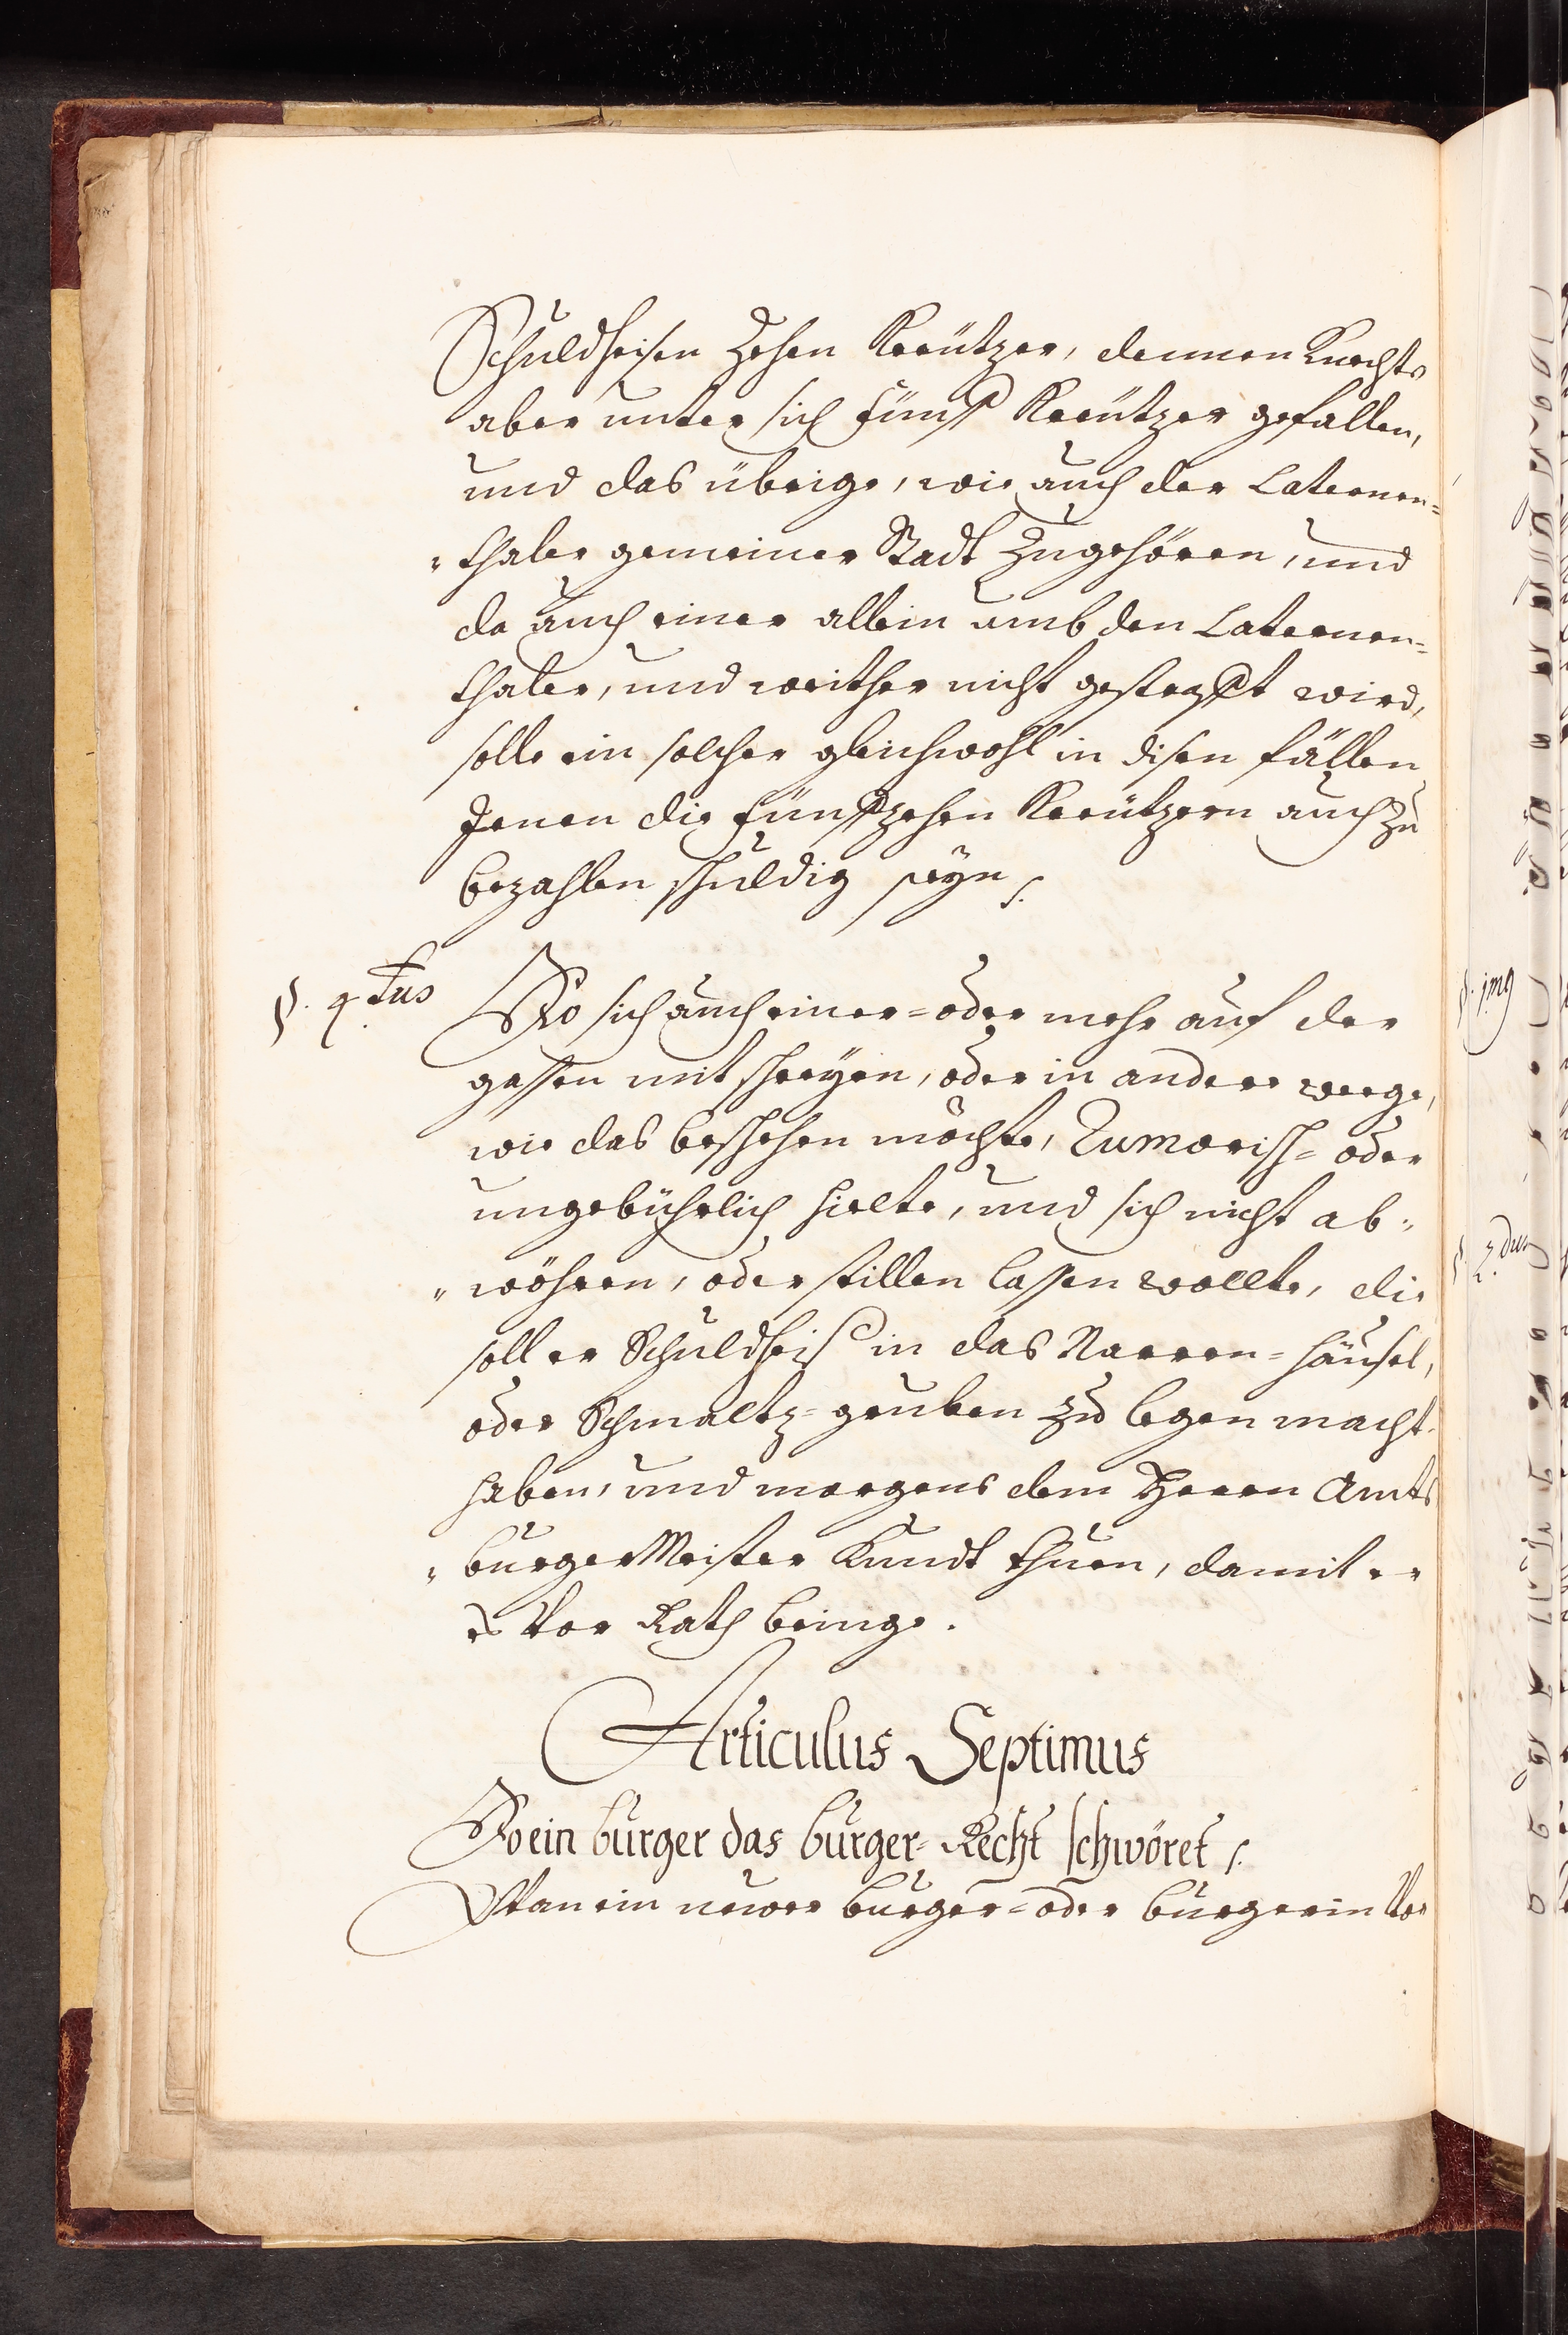 Schuldheisen Zehen Kreützer, dennen Knechts
aber unter sich fünff Kreützer gefallen,
und das übrige, wie auch der Laternen=
"thaler gemeiner Stadt Zugehören, und
da auch einer allein umb den Laternen=
thaler, und weither nicht gestrafft wird,
solle ein solcher gleichwohl in disen fällen
Jenen die fünffzehen Kreützern auch zu
bezahlen schuldig seyn /.
§. 4.tus
Wo sich auch einer= oder mehr auf der
gassen mit schreyen, oder in andere weege,
wie das beschehen möchte, Rumorisch= oder
ungebührlich hielte, und sich nicht ab„
„wöhren, oder stillen lassen wollte, die
soll er Schuldheis in das Narren=häusel,
oder Schmaltz=gruben zu legen macht
haben, und morgens dem Herrn Amts
„burgerMeister Kundt thuen, damit er
es Vor Rath bringe.
Articulus Septimus
Wo ein burger das burger=Recht schwöret /.
Wan ein neuer burger= oder burgerin Vor
§. 1mus
§. 2.dus